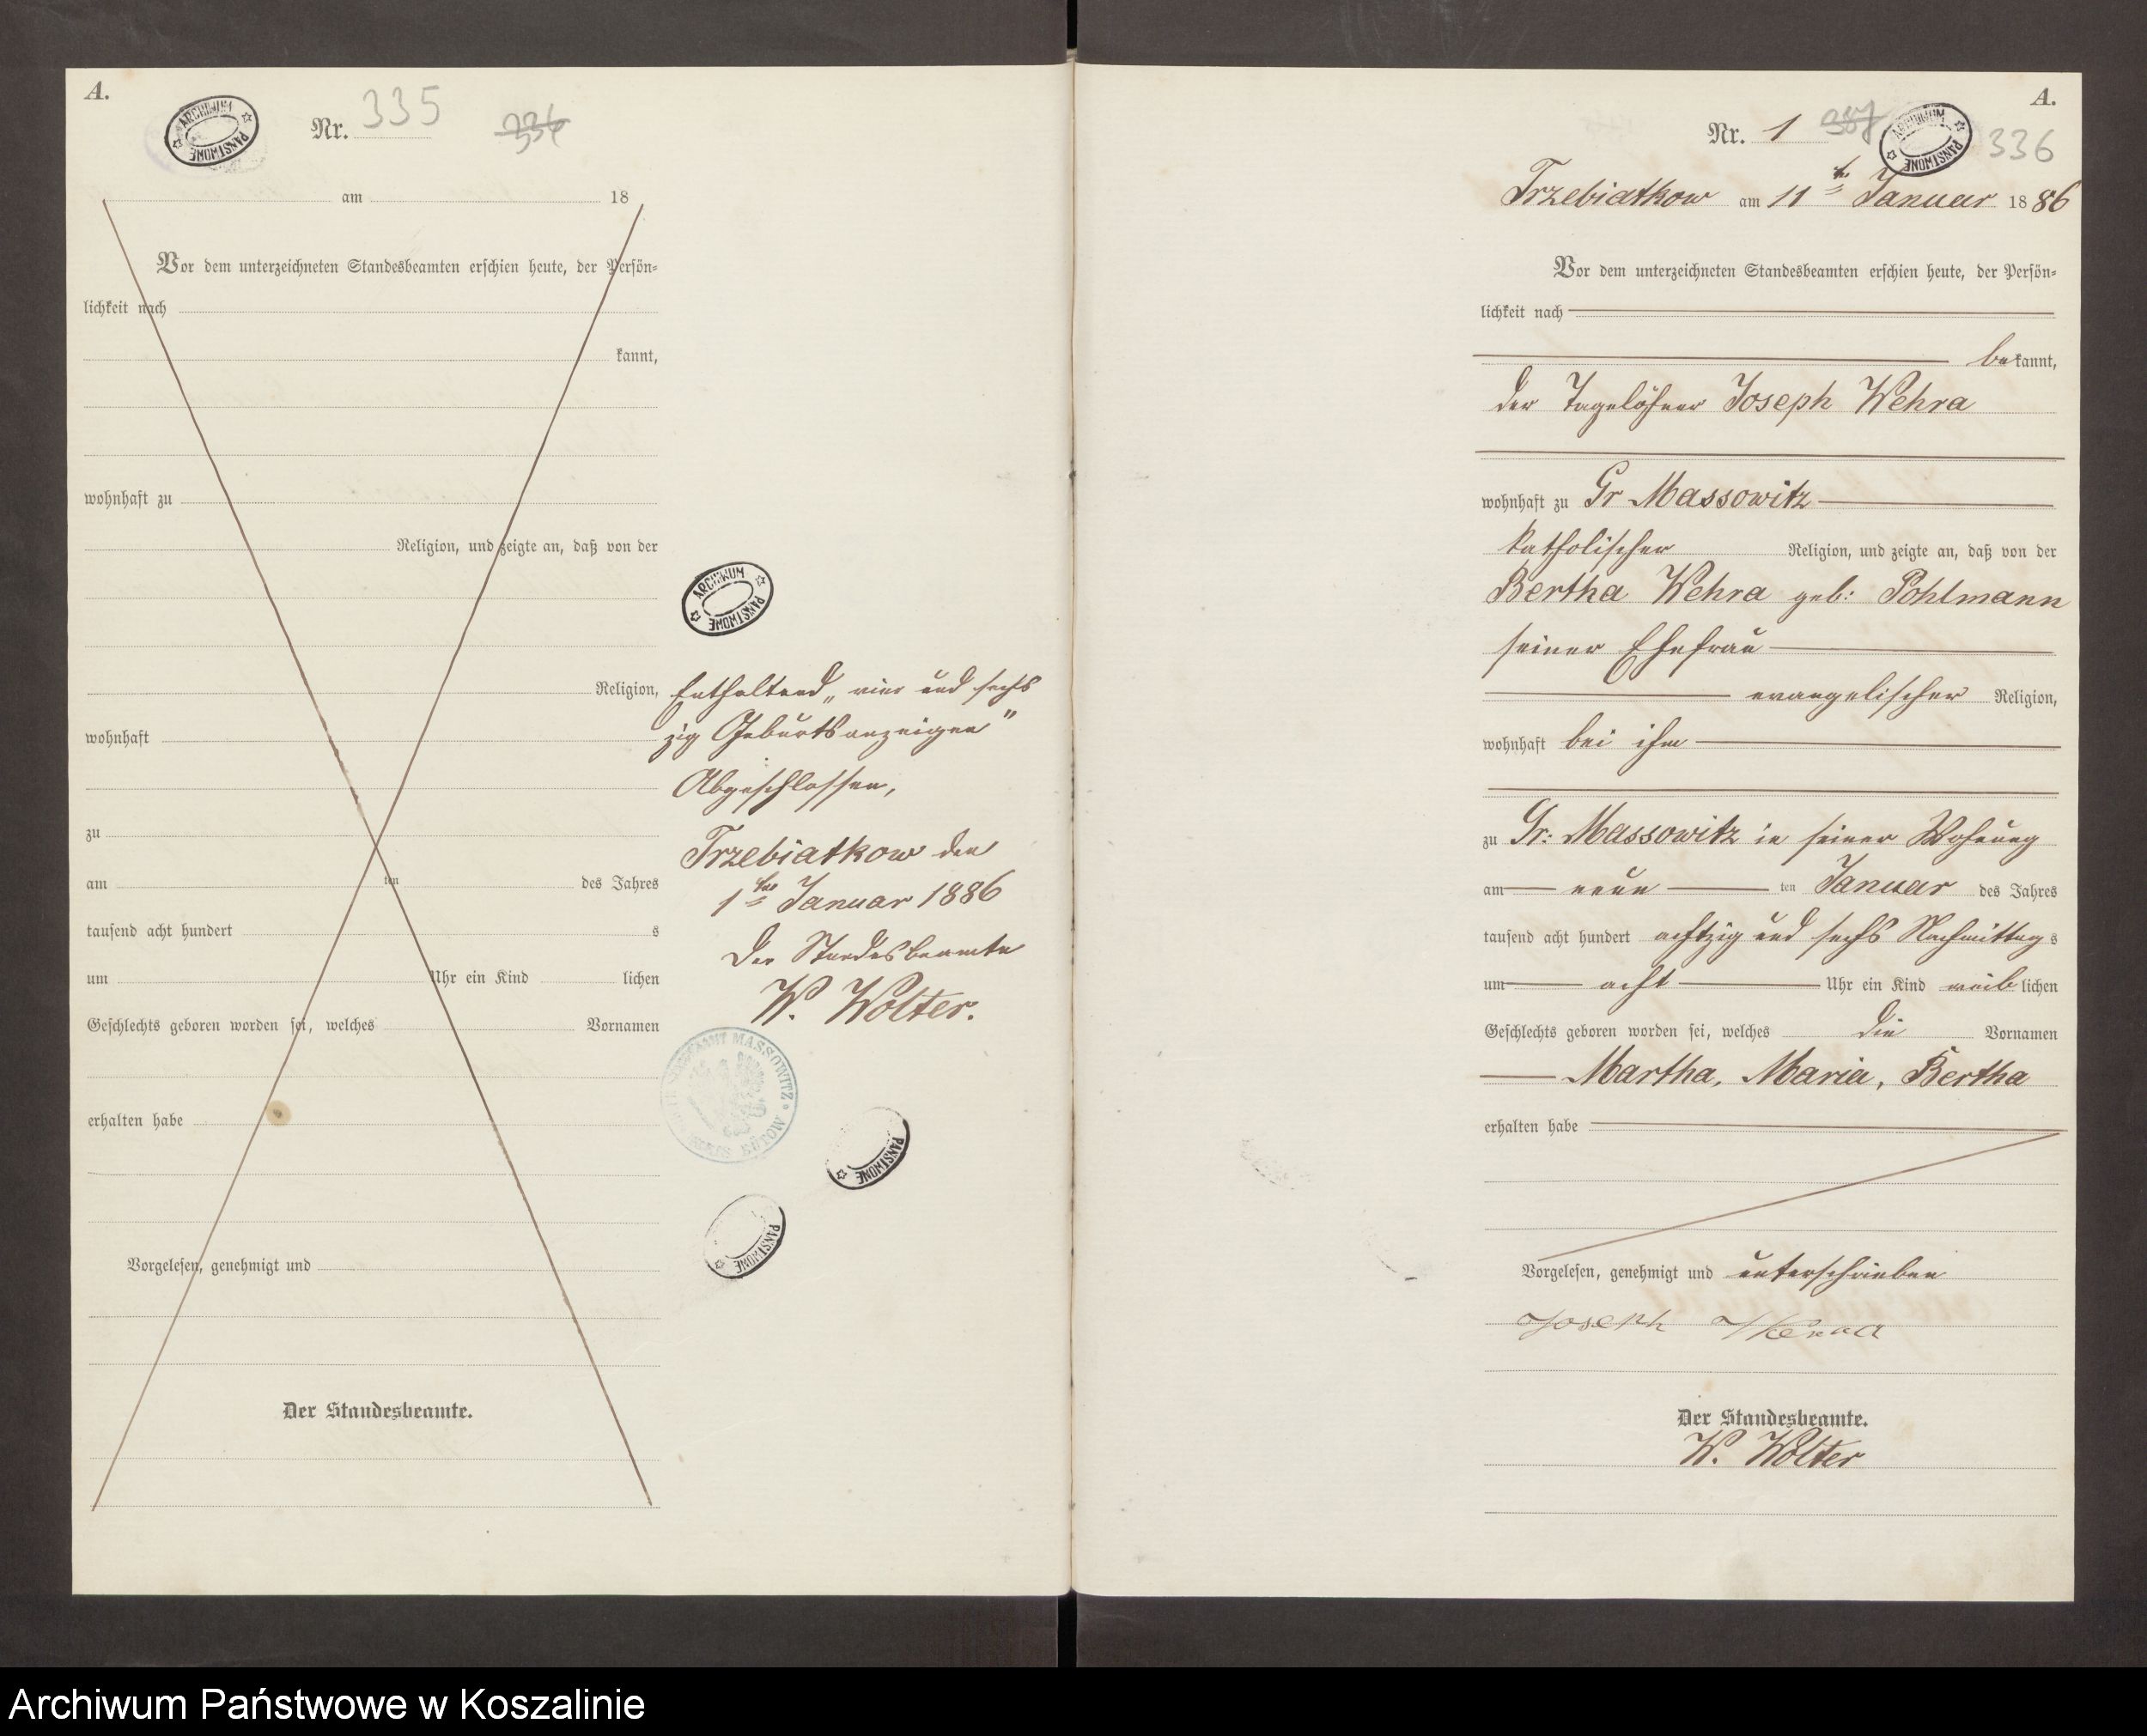 A.
ARCHIWUM PAŃSTWOWE
Nr. 335 334
am 18
Vor dem unterzeichneten Standesbeamten erschien heute, der Persön-
lichkeit nach
kannt,
wohnhaft zu
Religion, und zeigte an, daß von der
Religion,
wohnhaft
zu
am ten des Jahres
tausend acht hundert s
um Uhr ein Kind lichen
Geschlechts geboren worden sei, welches Vornamen
erhalten habe
Vorgelesen, genehmigt und
Der Standesbeamte.
ARCHIWUM PAŃSTWOWE
Enthaltend „ vier und sechs
zig Geburtsanzeigen"
Abgeschlossen,
Trzebiatkow den
1ten Januar 1886
Der Standesbeamte
W. Wolter.
MASSOWITZ KREIS BÜTOW
PAŃSTWOWE
PAŃSTWOWE
A.
Nr. 1 387
ARCHIWUM PAŃSTWOWE
336
Trzebiatkow am 11ten Januar 1886
Vor dem unterzeichneten Standesbeamten erschien heute, der Persön-
lichkeit nach
bekannt,
der Tagelöhner Joseph Wehra
wohnhaft zu Gr Massowitz
katholischer Religion, und zeigte an, daß von der
Bertha Wehra geb: Pohlmann
seiner Ehefrau
evangelischer Religion,
wohnhaft bei ihm
zu Gr: Massowitz in seiner Wohnung
am neun ten Januar des Jahres
tausend acht hundert achtzig und sechs Nachmittags
um acht Uhr ein Kind weiblichen
Geschlechts geboren worden sei, welches die Vornamen
Martha, Maria, Bertha
erhalten habe
Vorgelesen, genehmigt und unterschrieben
Joseph Wehra
Der Standesbeamte.
W. Wolter
Archiwum Państwowe w Koszalinie